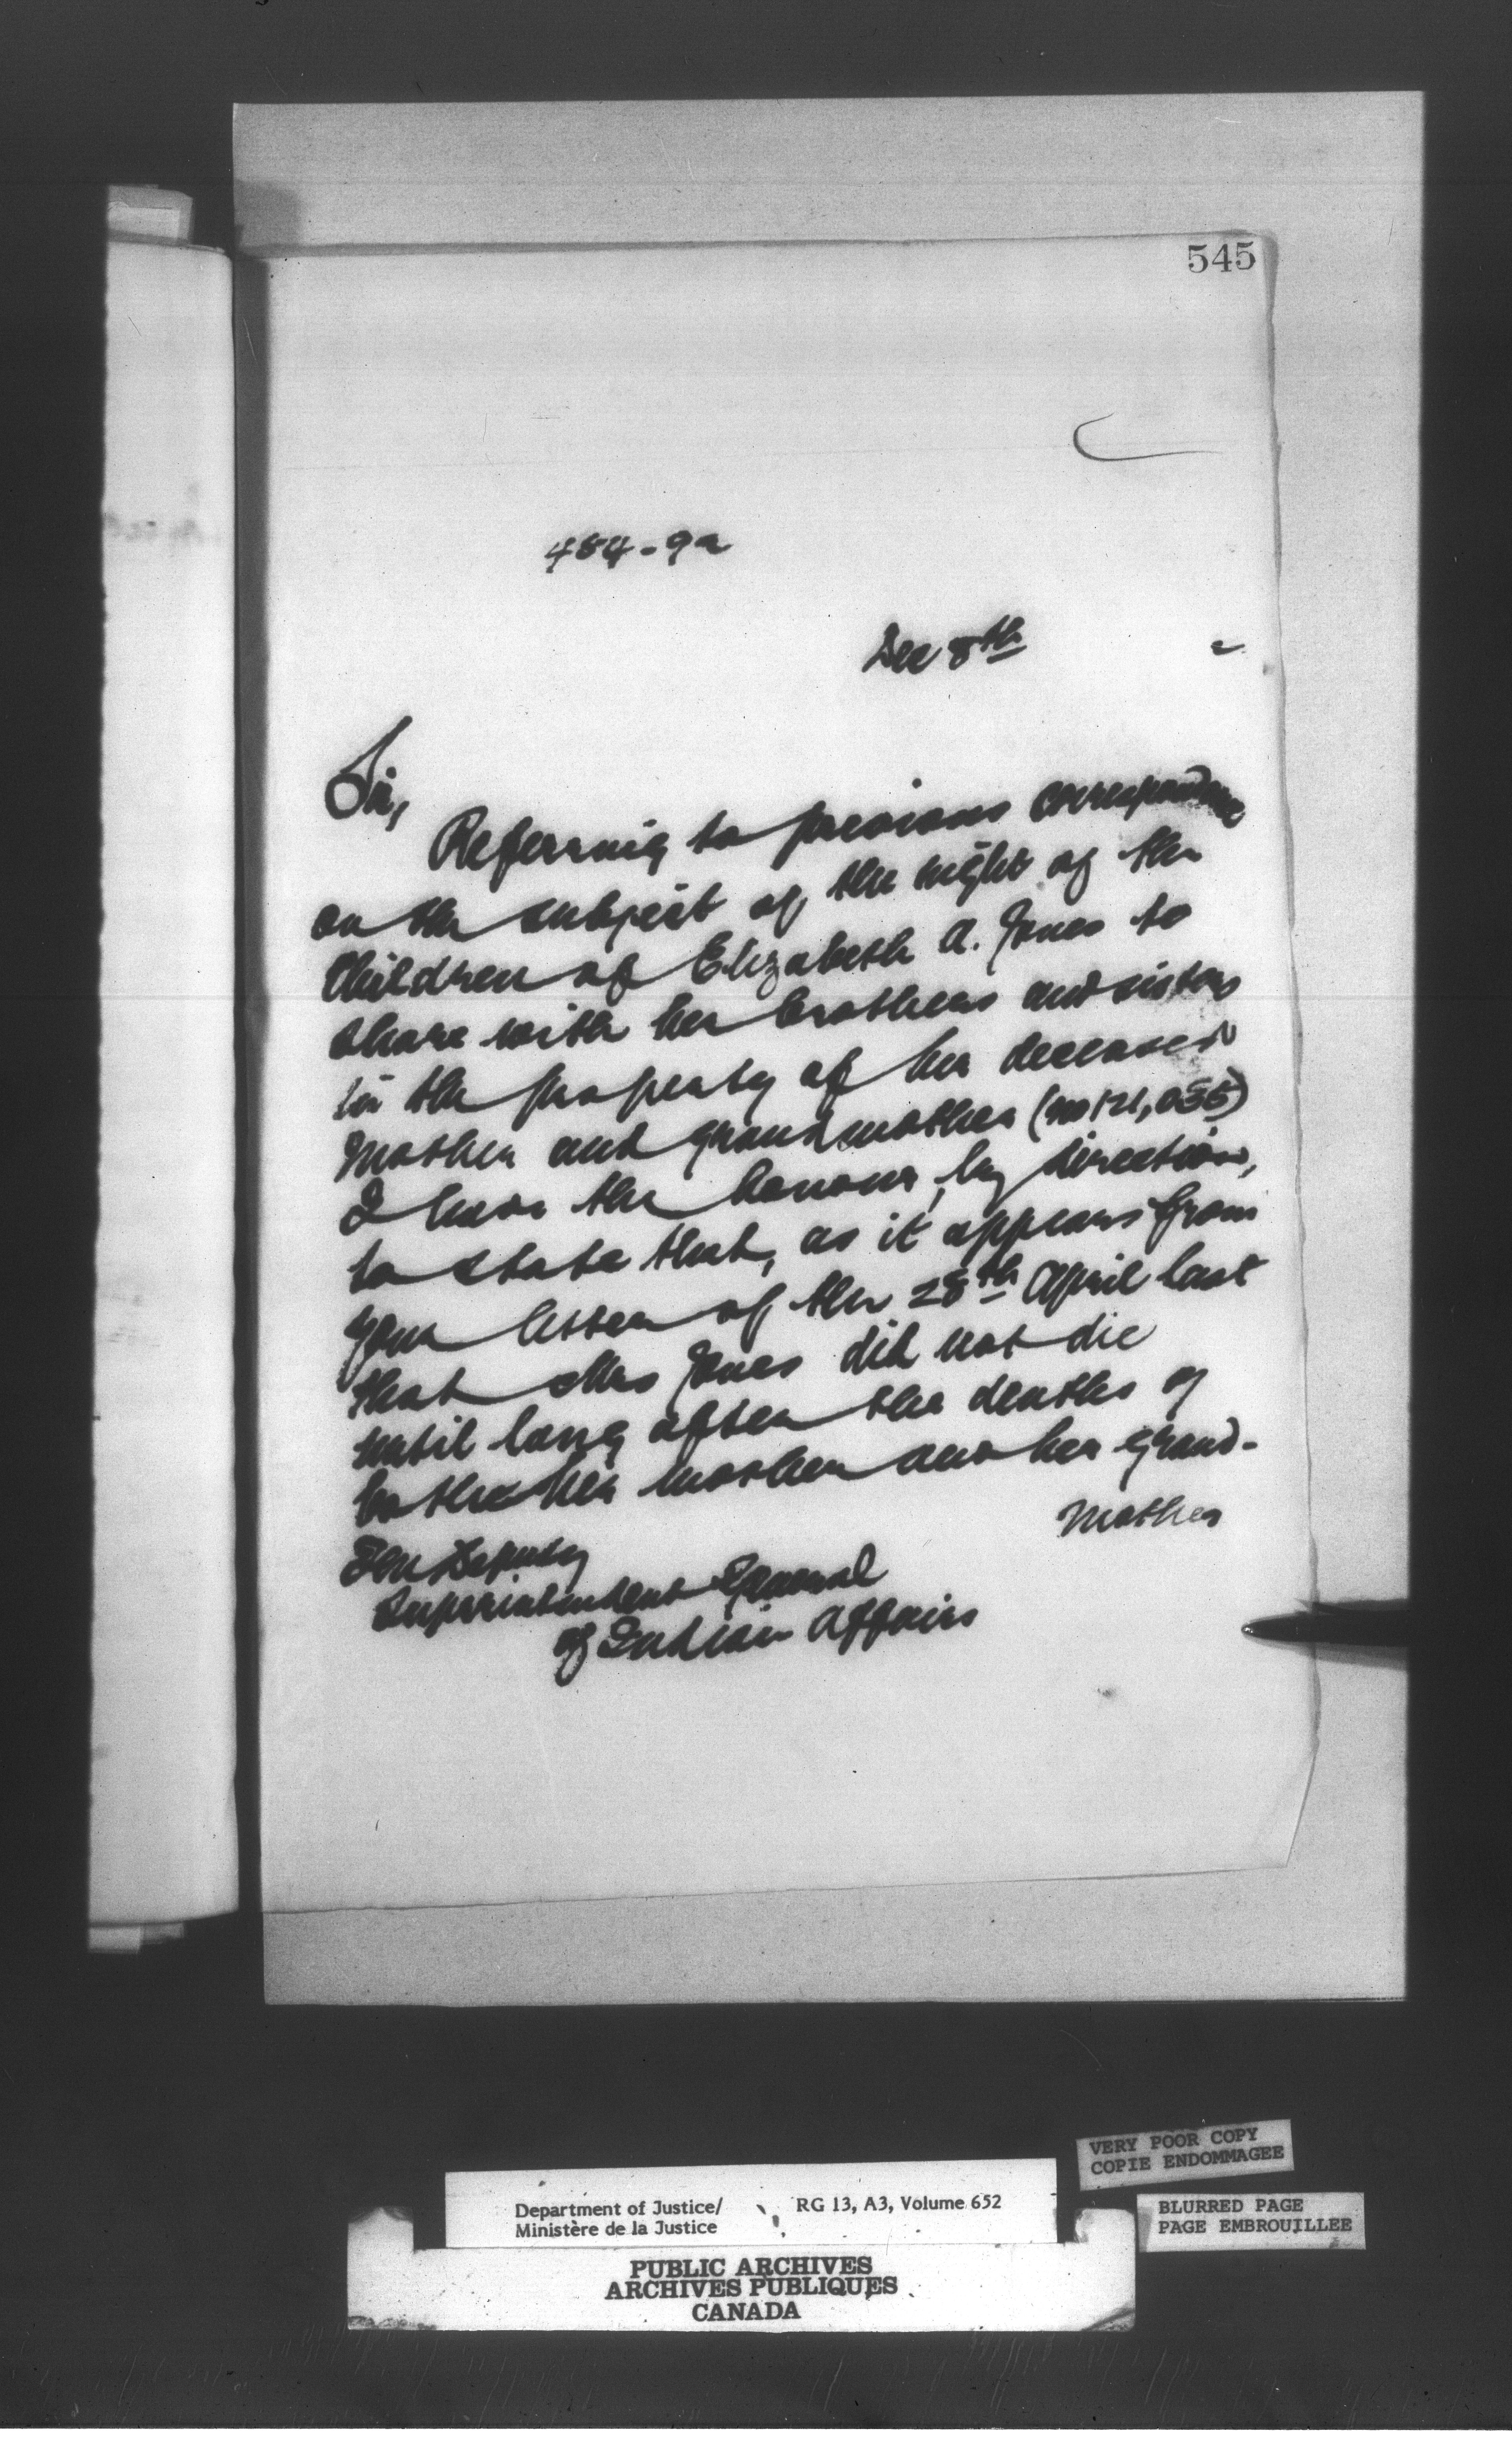 545
484-92
Dec 8th 2
Sir,
Referring to previous correspondence
on the subject of the right of the
Children of Elizabeth A. Jones to
share with her brothers and sisters
in the property of her deceased
Mother and grandmother (no 121,055)
I have the honour, by direction,
to state that, as it appears from
your letter of the 28th April last
that Mrs Jones did not die
until long after the deaths of
both her mother and her grand-
mother
The Deputy
Superintendent General
of Indian Affairs
VERY POOR COPY
COPIE ENDOMMAGEE
Department of Justice/
Ministère de la Justice
RG 13, A3, Volume 652
BLURRED PAGE
PAGE EMBROUILLEE
PUBLIC ARCHIVES
ARCHIVES PUBLIQUES
CANADA